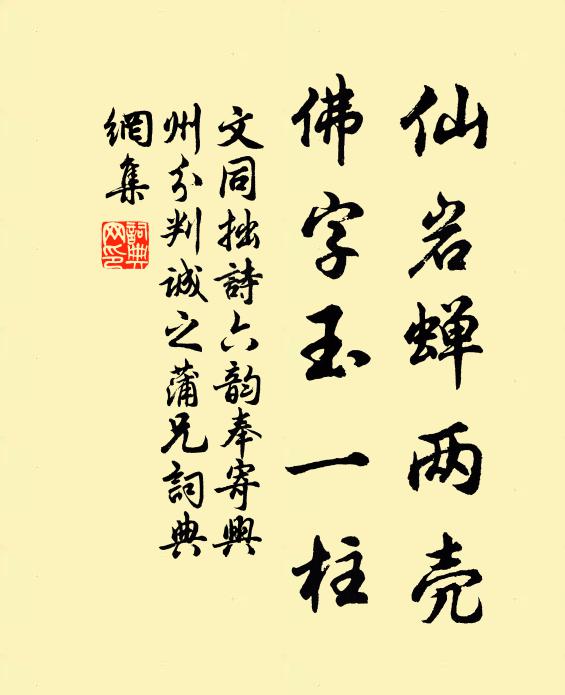 仙岩蝉两壳
佛字玉一柱
文同拙詩六韵奉寄興
州分判诚之蒲兄詞典
網集
詞典
网印